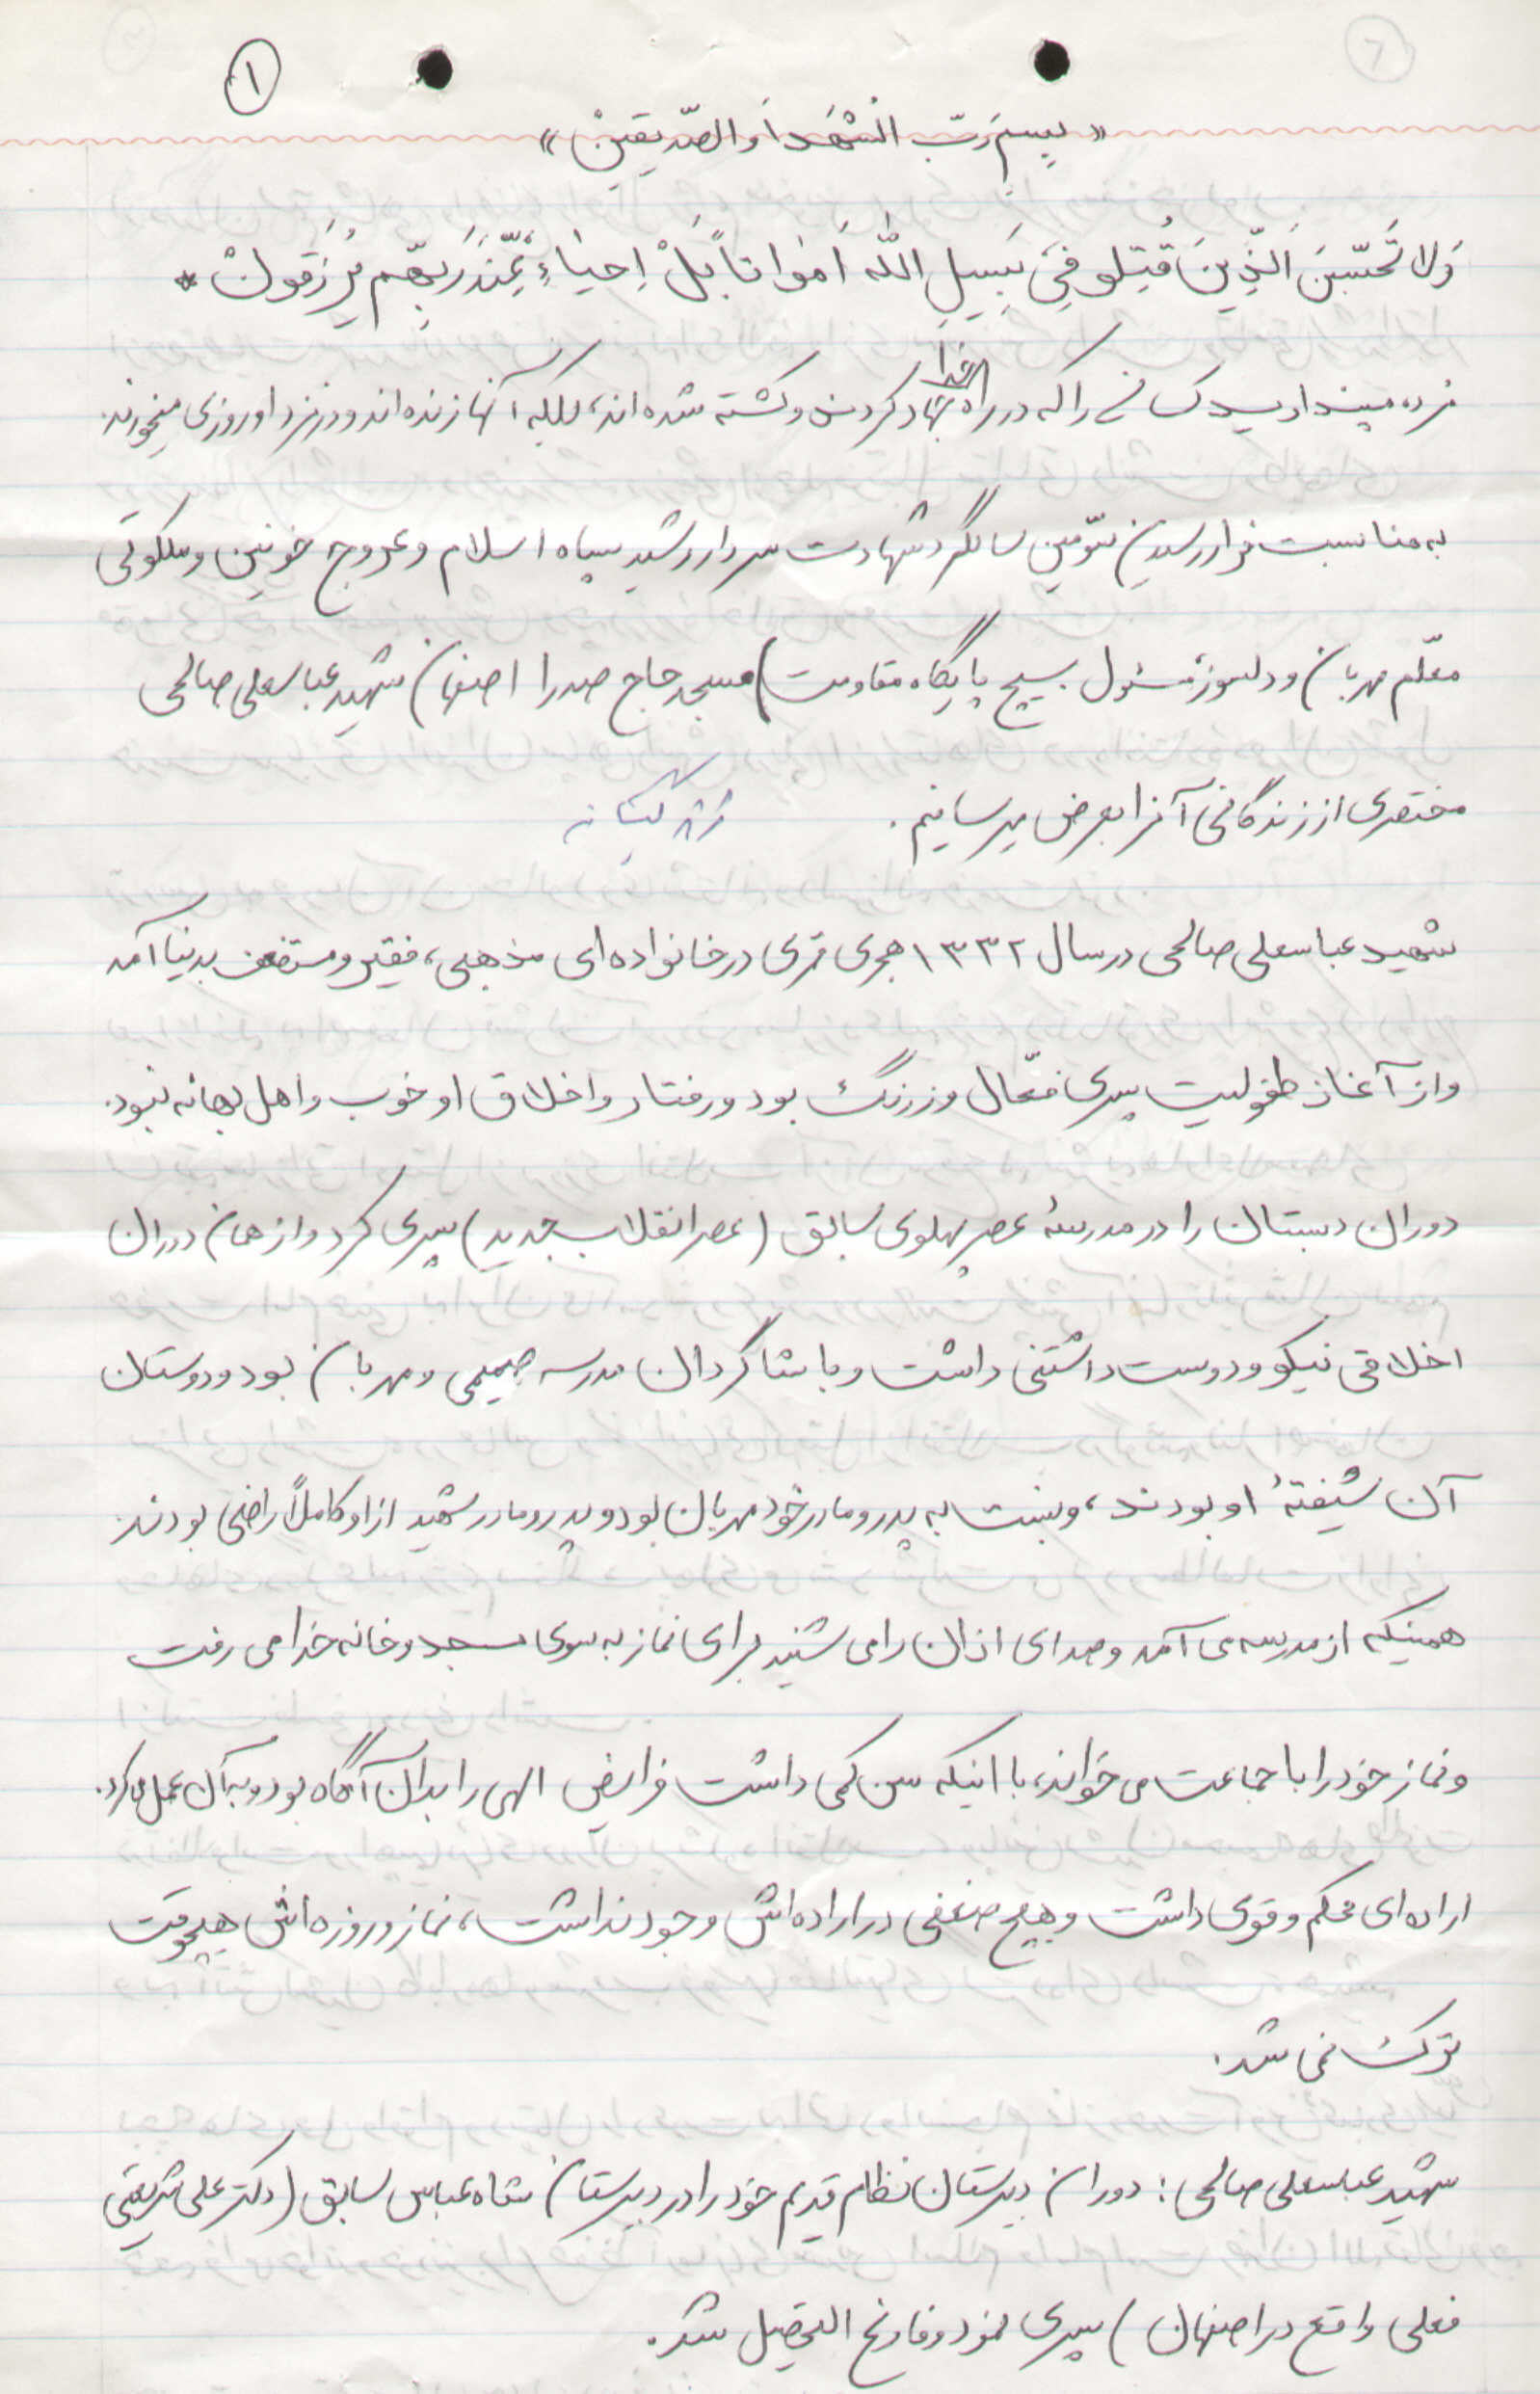 ۱
«بِسمِ رَبّ الشُهَدا وَ الصّدیقینْ»
وَلا تَحسَّبنَ اَلّذِینَ قُتِلو فِی سَبیلِ اللّه اَمواتاً بَلْ اِحیاءِ عِنّدَ رَبهِّم یُرزَقونْ *
مرده مپندارید کسانی را که در راه خدا جهاد کردند و کشته شده اند، بلکه آنها زنده اند و در نزد او روزی میخورند.
به مناسبت فرا رسیدن سوّمین سالگرد شهادت سردار رشید سپاه اسلام و عروج خونین و ملکوتی
معلّم مهربان و دلسوز، مسئول بسیج پایگاه مقاومت) مسجد حاج صدرا اصفهان شهید عباسعلی صالحی
مختصری از زندگانی آنرا بعرض میرسانیم.
شهید عباسعلی صالحی در سال ۱۳۳۲ هجری قمری در خانواده ای مذهبی، فقیر و مستضعف بدنیا آمد
و از آغاز طفولیت پسری فعّال و زرنگ بود و رفتار و اخلاق او خوب و اهل بهانه نبود.
دوران دبستان را در مدرسهٔ عصر پهلوی سابق (عصر انقلاب جدید) سپری کرد و از همان دوران
اخلاقی نیکو و دوست داشتنی داشت و با شاگردان مدرسه صمیمی و مهربان بود و دوستان
آن شیفتهٔ او بودند، و نسبت به پدر و مادر خود مهربان بود و پدر و مادر شهید از او کاملاً راضی بودند.
همینکه از مدرسه می آمد و صدای اذان را می شنید برای نماز به سوی مسجد و خانه خدا می رفت
و نماز خود را با جماعت می خواند، با اینکه سن کمی داشت فرایض الهی را بدان آگاه بود و به آن عمل می کرد.
اراده ای محکم و قوی داشت و هیچ ضعفی در اراده اش وجود نداشت، نماز و روزه اش هیچوقت
ترک نمی شد.
شهید عباسعلی صالحی: دوران دبیرستان نظام قدیم خود را در دبیرستان شاه عباس سابق (دکتر علی شریعتی
فعلی واقع در اصفهان) سپری نمود و فارغ التحصیل شد.